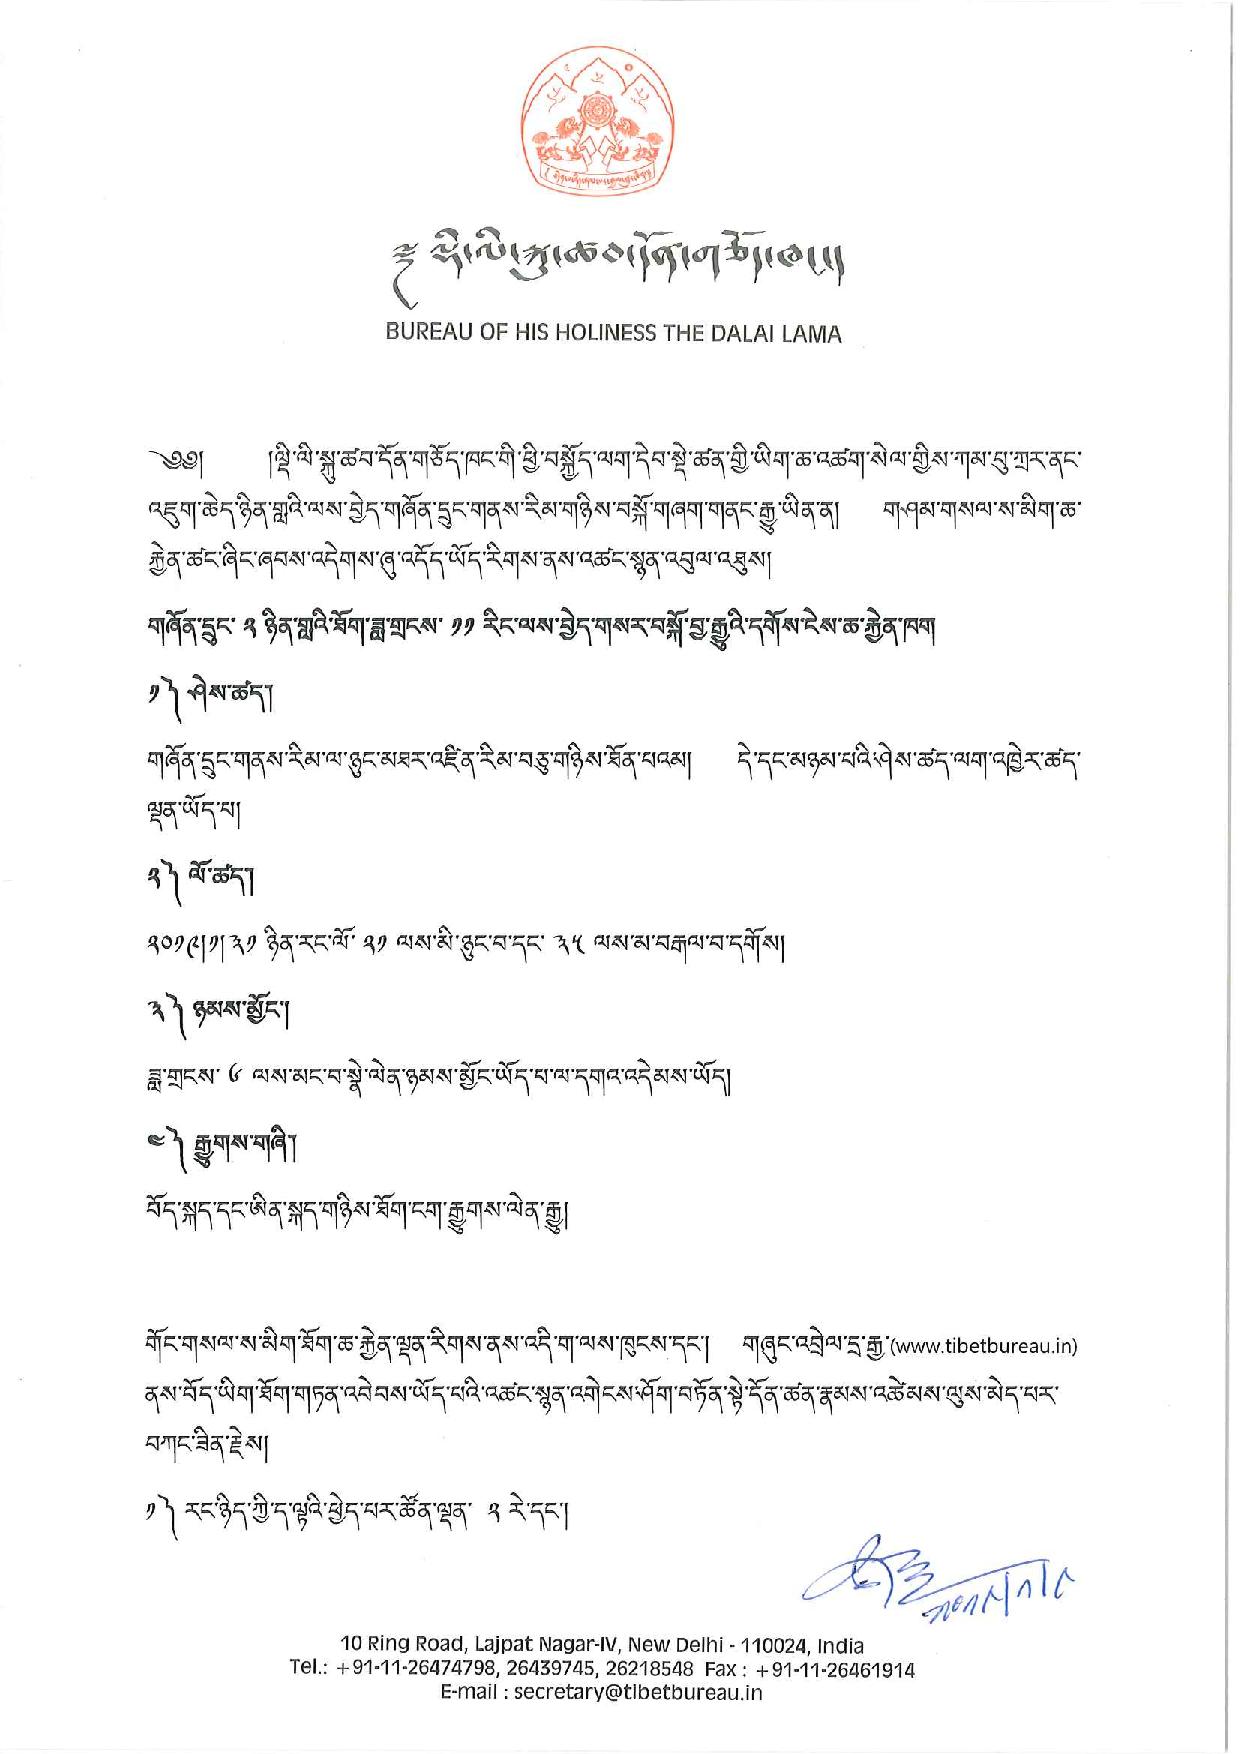 ལྡི་ལི་སྐུ་ཚབ་དོན་གཅོད་ཁང༌།
BUREAU OF HIS HOLINESS THE DALAI LAMA
༄༅། །ལྡི་ལི་སྐུ་ཚབ་དོན་གཅོད་ཁང་གི་ཕྱི་བསྐྱོད་ལག་དེབ་སྡེ་ཚན་གྱི་ཡིག་ཆ་འཚག་སེལ་གྱིས་ཀམ་པུ་ཀྲར་ནང་
འཇུག་ཆེད་ཉིན་གླའི་ལས་བྱེད་གཞོན་དྲུང་གནས་རིམ་གཉིས་བསྐོ་གཞག་གནང་རྒྱུ་ཡིན་ན། གཤམ་གསལ་ས་མིག་ཆ་
རྐྱེན་ཚང་ཞིང་ཞབས་འདེགས་ཞུ་འདོད་ཡོད་རིགས་ནས་འཚང་སྙན་འབུལ་འཐུས།
གཞོན་དྲུང་ ༢ ཉིན་གླའི་ཐོག་ཟླ་གྲངས་ ༡༡ རིང་ལས་བྱེད་གསར་བསྐོ་བྱ་རྒྱུའི་དགོས་ངེས་ཆ་རྐྱེན་ཁག
༡༽ ཤེས་ཚད།
གཞོན་དྲུང་གནས་རིམ་ལ་ཉུང་མཐར་འཛིན་རིམ་བཅུ་གཉིས་ཐོན་པའམ། དེ་དང་མཉམ་པའི་ཤེས་ཚད་ལག་འཁྱེར་ཚད་
ལྡན་ཡོད་པ།
༢༽ ལོ་ཚད།
༢༠༡༩།༡།༣༡ ཉིན་རང་ལོ་ ༢༡ ལས་མི་ཉུང་བ་དང་ ༣༥ ལས་མ་བརྒལ་བ་དགོས།
༣༽ ཉམས་མྱོང་།
ཟླ་གྲངས་ ༦ ལས་མང་བ་སྣེ་ལེན་ཉམས་མྱོང་ཡོད་པ་ལ་དགའ་འདེམས་ཡོད།
༤༽ རྒྱུགས་གཞི།
བོད་སྐད་དང་ཨིན་སྐད་གཉིས་ཐོག་ངག་རྒྱུགས་ལེན་རྒྱུ།
གོང་གསལ་ས་མིག་ཐོག་ཆ་རྐྱེན་ལྡན་རིགས་ནས་འདི་ག་ལས་ཁུངས་དང་། གཞུང་འབྲེལ་དྲ་རྒྱ་(www.tibetbureau.in)
ནས་བོད་ཡིག་ཐོག་གཏན་འབེབས་ཡོད་པའི་འཚང་སྙན་འགེངས་ཤོག་བཏོན་སྟེ་དོན་ཚན་རྣམས་འཚེམས་ལུས་མེད་པར་
བཀང་ཟིན་རྗེས།
༡༽ རང་ཉིད་ཀྱི་ད་ལྟའི་ཕྱེད་པར་ཚོན་ལྡན་ ༢ རེ་དང་།
༢༠༡༩།༡།༩
10 Ring Road, Lajpat Nagar-IV, New Delhi - 110024, India
Tel.: +91-11-26474798, 26439745, 26218548 Fax : +91-11-26461914
E-mail : secretary@tibetbureau.in